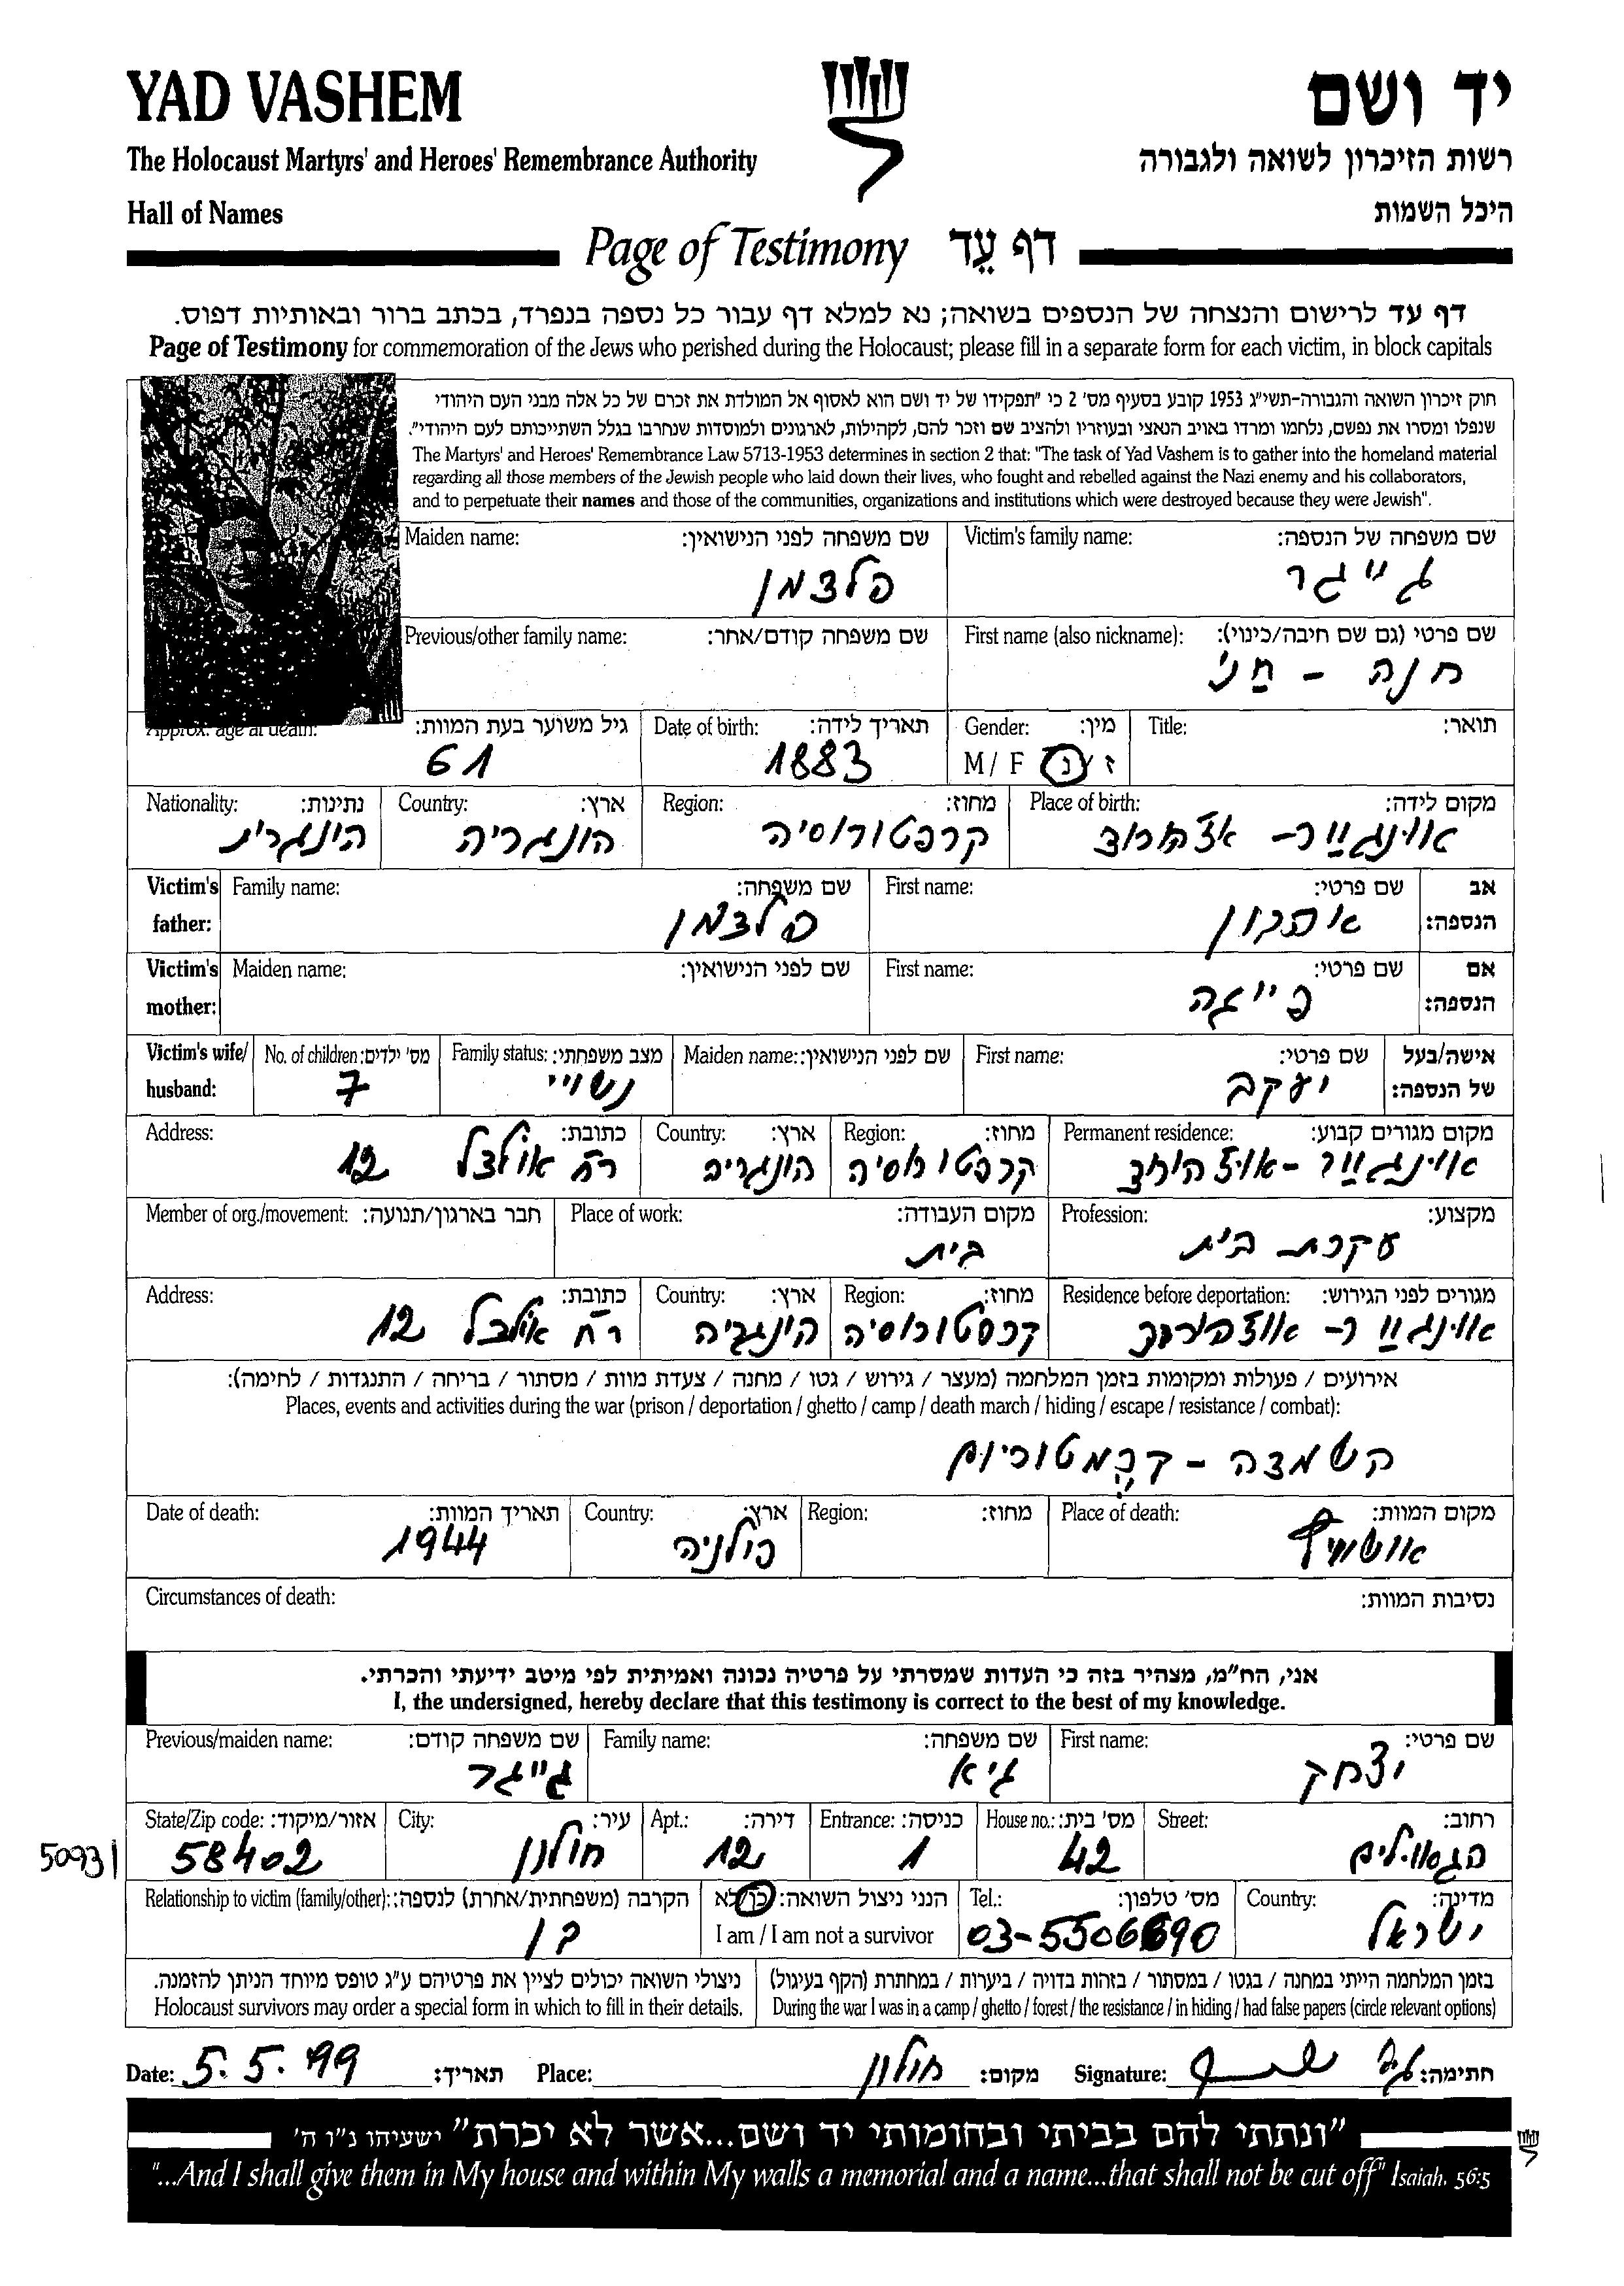 YAD VASHEM
יד ושם
The Holocaust Martyrs' and Heroes' Remembrance Authority
רשות הזיכרון לשואה ולגבורה
Hall of Names
היכל השמות
Page of Testimony דף עֵד
דף עד לרישום והנצחה של הנספים בשואה; נא למלא דף עבור כל נספה בנפרד, בכתב ברור ובאותיות דפוס.
Page of Testimony for commemoration of the Jews who perished during the Holocaust; please fill in a separate form for each victim, in block capitals
חוק זיכרון השואה והגבורה-תשי״ג 1953 קובע בסעיף מס׳ 2 כי ״תפקידו של יד ושם הוא לאסוף אל המולדת את זכרם של כל אלה מבני העם היהודי
שנפלו ומסרו את נפשם, נלחמו ומרדו באויב הנאצי ובעוזריו ולהציב שם וזכר להם, לקהילות, לארגונים ולמוסדות שנחרבו בגלל השתייכותם לעם היהודי״.
The Martyrs' and Heroes' Remembrance Law 5713-1953 determines in section 2 that: "The task of Yad Vashem is to gather into the homeland material
regarding all those members of the Jewish people who laid down their lives, who fought and rebelled against the Nazi enemy and his collaborators,
and to perpetuate their names and those of the communities, organizations and institutions which were destroyed because they were Jewish".
Victim's family name: שם משפחה של הנספה:
גייגר
Maiden name: שם משפחה לפני הנישואין:
פלצמן
First name (also nickname): שם פרטי (גם שם חיבה/כינוי):
חנה - חני
Previous/other family name: שם משפחה קודם/אחר:
Title: תואר:
Gender: מין:
M / F ז / נ
Date of birth: תאריך לידה:
1883
Approx. age at death: גיל משוער בעת המוות:
61
Place of birth: מקום לידה:
Region: מחוז:
קרפטורוסיה
Country: ארץ:
הונגריה
Nationality: נתינות:
הונגרית
Victim's father: אב הנספה:
First name: שם פרטי:
Family name: שם משפחה:
פלצמן
Victim's mother: אם הנספה:
First name: שם פרטי:
פייגה
Maiden name: שם לפני הנישואין:
Victim's wife/ husband: אישה/בעל של הנספה:
First name: שם פרטי:
יעקב
Maiden name: שם לפני הנישואין:
Family status: מצב משפחתי:
נשוי
No. of children: מס׳ ילדים:
7
Permanent residence: מקום מגורים קבוע:
Region: מחוז:
קרפטורוסיה
Country: ארץ:
הונגריה
Address: כתובת:
רח 12
Profession: מקצוע:
עקרת בית
Place of work: מקום העבודה:
בית
Member of org./movement: חבר בארגון/תנועה:
Residence before deportation: מגורים לפני הגירוש:
Region: מחוז:
קרפטורוסיה
Country: ארץ:
הונגריה
Address: כתובת:
רח 12
אירועים / פעולות ומקומות בזמן המלחמה (מעצר / גירוש / גטו / מחנה / צעדת מוות / מסתור / בריחה / התנגדות / לחימה):
Places, events and activities during the war (prison / deportation / ghetto / camp / death march / hiding / escape / resistance / combat):
השמדה - קרמטוריום
Place of death: מקום המוות:
אושוויץ
Region: מחוז:
Country: ארץ:
פולניה
Date of death: תאריך המוות:
1944
Circumstances of death: נסיבות המוות:
אני, הח״מ, מצהיר בזה כי העדות שמסרתי על פרטיה נכונה ואמיתית לפי מיטב ידיעתי והכרתי.
I, the undersigned, hereby declare that this testimony is correct to the best of my knowledge.
First name: שם פרטי:
יצחק
Family name: שם משפחה:
גיא
Previous/maiden name: שם משפחה קודם:
גייגר
Street: רחוב:
House no.: מס׳ בית:
42
Entrance: כניסה:
1
Apt.: דירה:
12
City: עיר:
חולון
State/Zip code: אזור/מיקוד:
58402
50931
Country: מדינה:
ישראל
Tel.: מס׳ טלפון:
הנני ניצול השואה: כן/לא
I am / I am not a survivor
Relationship to victim (family/other): הקרבה (משפחתית/אחרת) לנספה:
בן
בזמן המלחמה הייתי במחנה / בגטו / במסתור / בזהות בדויה / ביערות / במחתרת (הקף בעיגול)
During the war I was in a camp / ghetto / forest / the resistance / in hiding / had false papers (circle relevant options)
ניצולי השואה יכולים לציין את פרטיהם ע״ג טופס מיוחד הניתן להזמנה.
Holocaust survivors may order a special form in which to fill in their details.
Date: 5.5.99 תאריך: Place: חולון מקום: Signature: חתימה:
״ונתתי להם בביתי ובחומותי יד ושם...אשר לא יכרת״ ישעיהו נ״ו ה׳
"...And I shall give them in My house and within My walls a memorial and a name...that shall not be cut off" Isaiah. 56:5